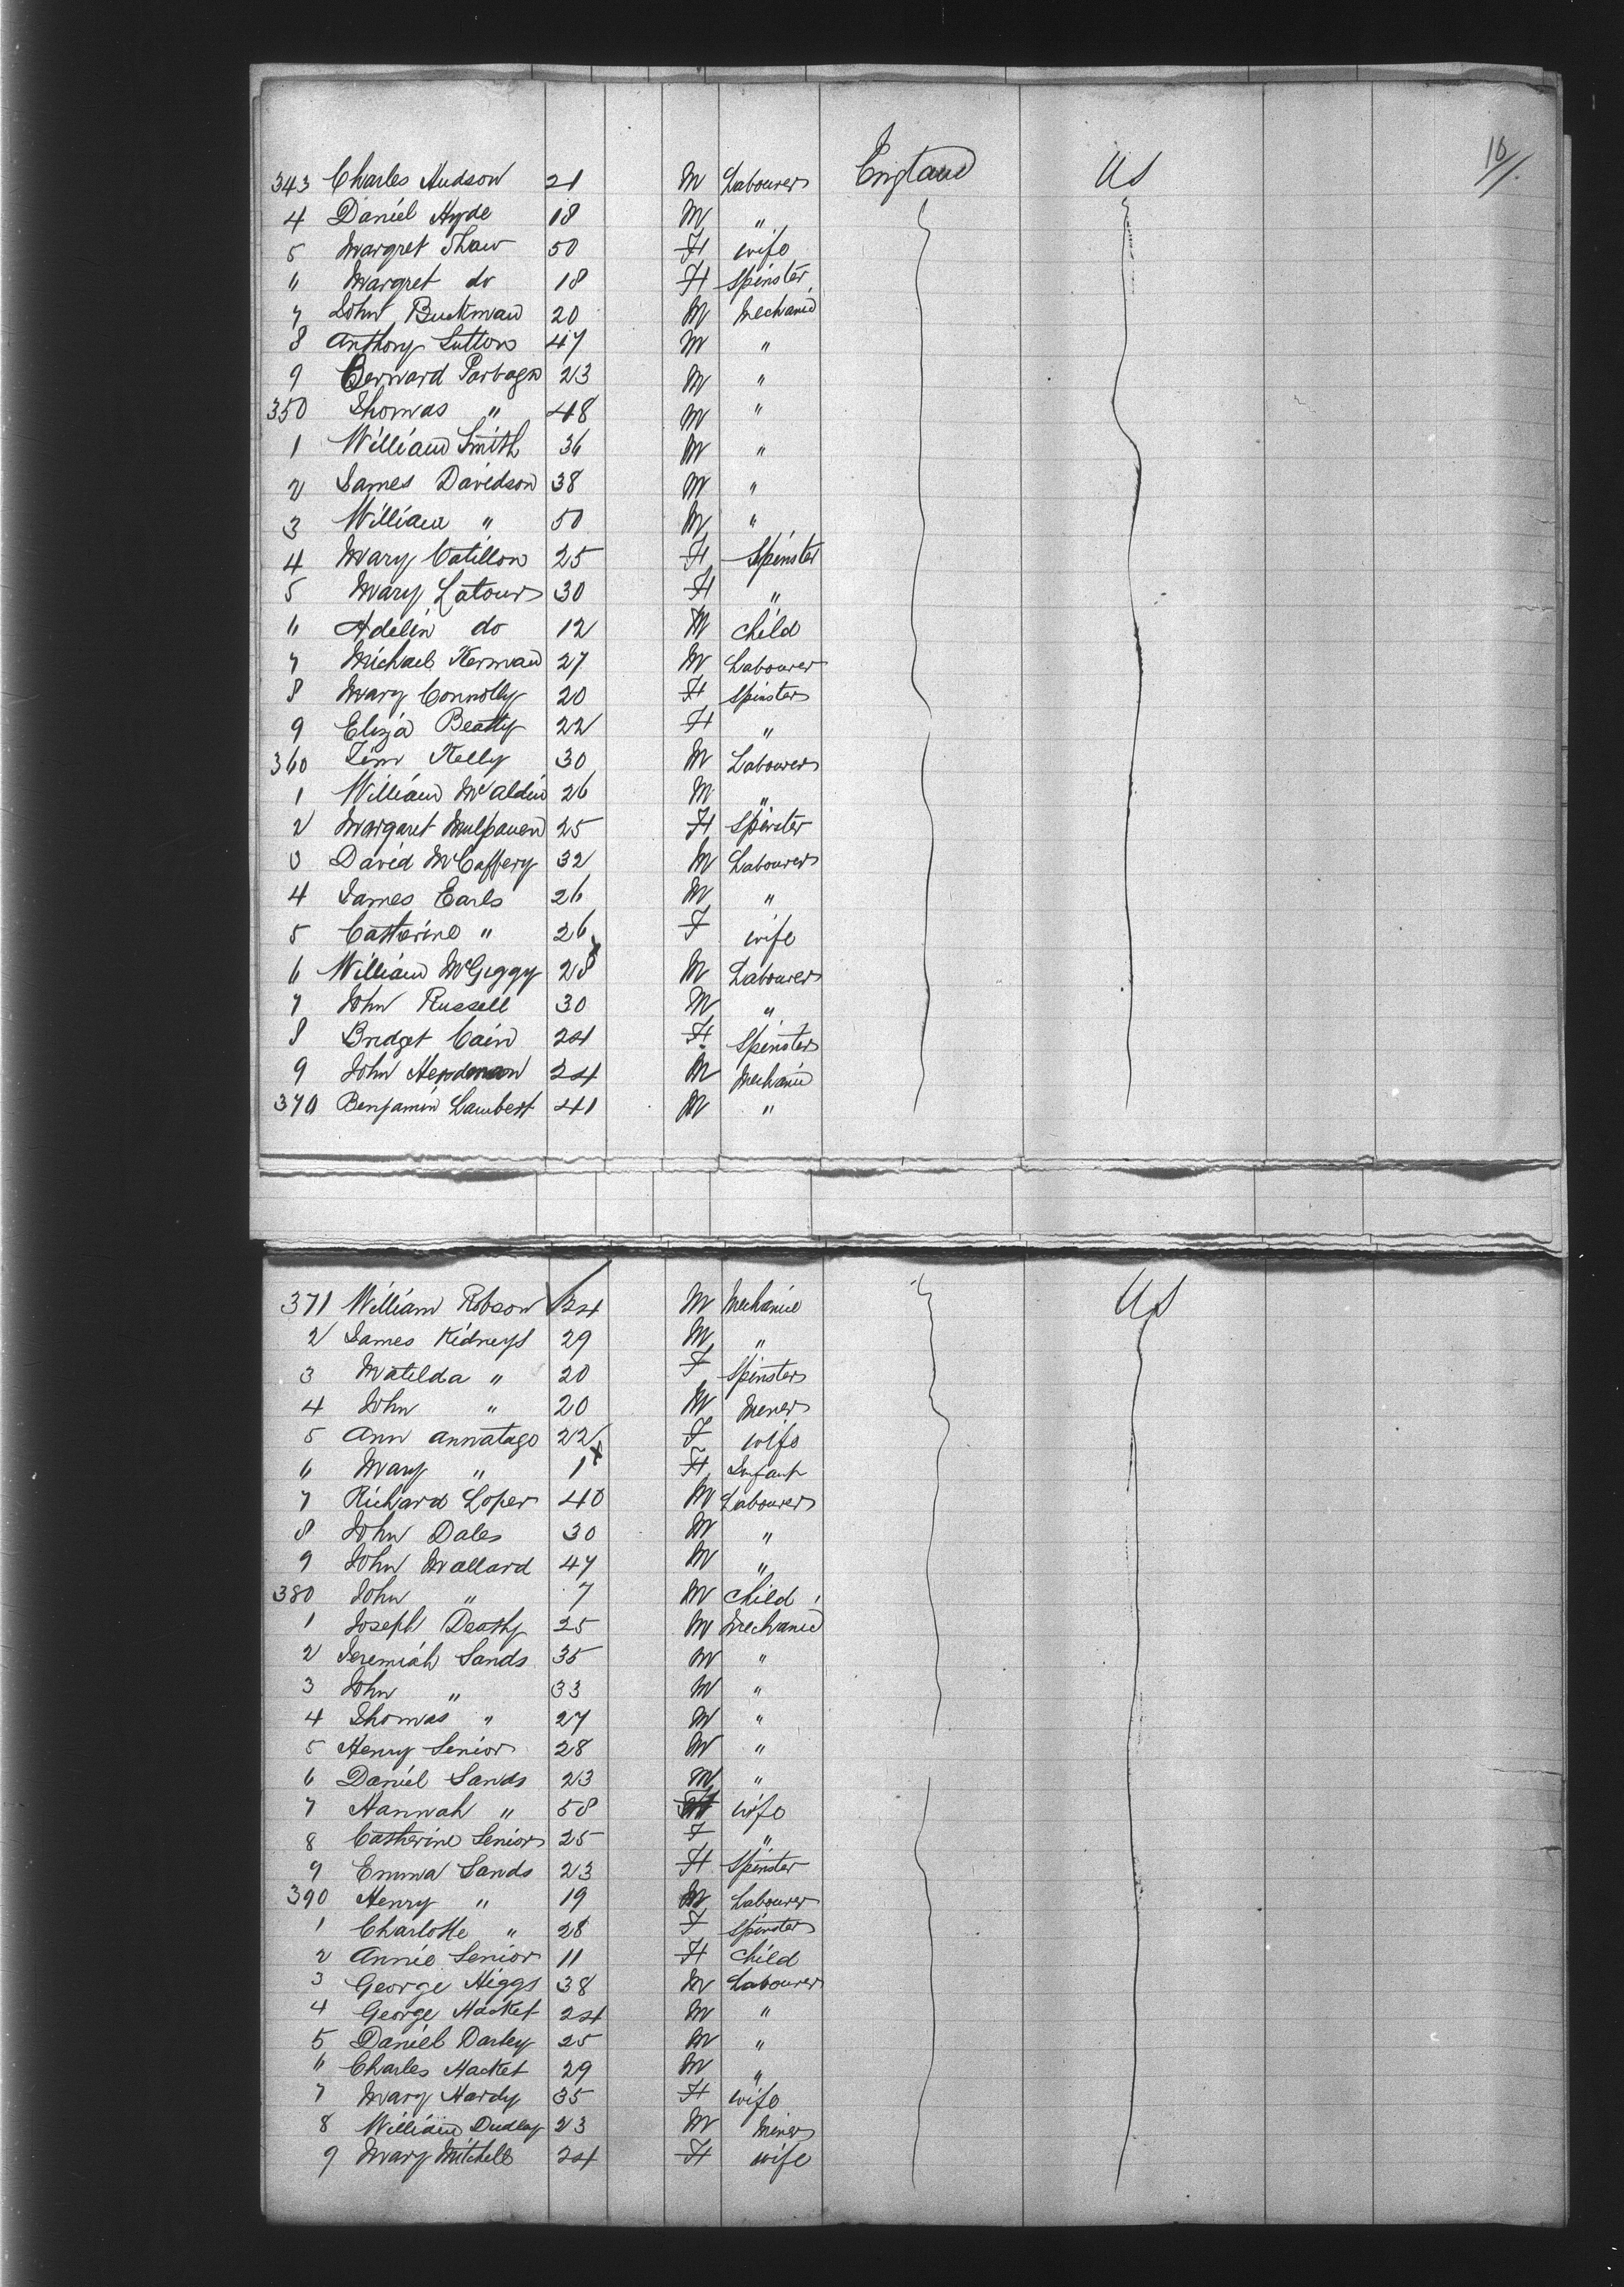 10/.
343 Charles Hudson 21 M Labourer England US
4 Daniel Hyde 18 M "
5 Margret Shaw 50 F wife
6 Margret do 18 F Spinster
7 John Buckman 20 M Mechanic
8 Anthony Sutton 47 M "
9 Bernard 23 M "
350 Thomas " 48 M "
1 William Smith 36 M "
2 James Davidson 38 M "
3 William " 50 M "
4 Mary Catillon 25 F Spinster
5 Mary Latour 30 F "
6 Adelin do 12 M Child
7 Michael Kernan 27 M Labourer
8 Mary Connolly 20 F Spinster
9 Eliza Beatty 22 F "
360 Tim Kelly 30 M Labourer
1 William McAldin 26 M "
2 Margaret 25 F Spinster
3 David McCaffery 32 M Labourer
4 James Earls 26 M "
5 Catherine " 26 F wife
6 William McGiggy 28 M Labourer
7 John Russell 30 M "
8 Bridget Cain 24 F Spinster
9 John Henderson 24 M Mechanic
370 Benjamin Lambert 41 M "
371 William Robson 34 M Mechanic US
2 James Kidneys 29 M "
3 Matilda " 20 F Spinster
4 John " 20 M Miner
5 Ann Annatago 22 F wife
6 Mary " 1 F Infant
7 Richard Loper 40 M Labourer
8 John Dales 30 M "
9 John Mallard 47 M "
380 John " 7 M Child
1 Joseph Deathy 25 M Mechanic
2 Jeremiah Sands 35 M "
3 John " 33 M "
4 Thomas " 27 M "
5 Henry Senior 28 M "
6 Daniel Sands 23 M "
7 Hannah " 58 wife
8 Catherine Senior 25 F "
9 Emma Sands 23 F Spinster
390 Henry " 19 M Labourer
1 Charlotte " 28 F Spinster
2 Annie Senior 11 F Child
3 George Higgs 38 M Labourer
4 George Hacket 24 M "
5 Daniel Darley 25 M "
6 Charles Hacket 29 M "
7 Mary Hardy 35 F wife
8 William Dudley 23 M Miner
9 Mary Mitchell 24 F wife